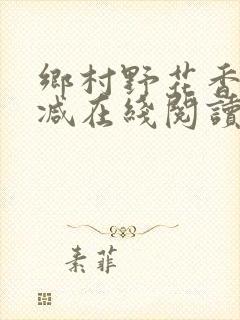 鄉村野花香
减在綫閱讀
素菲